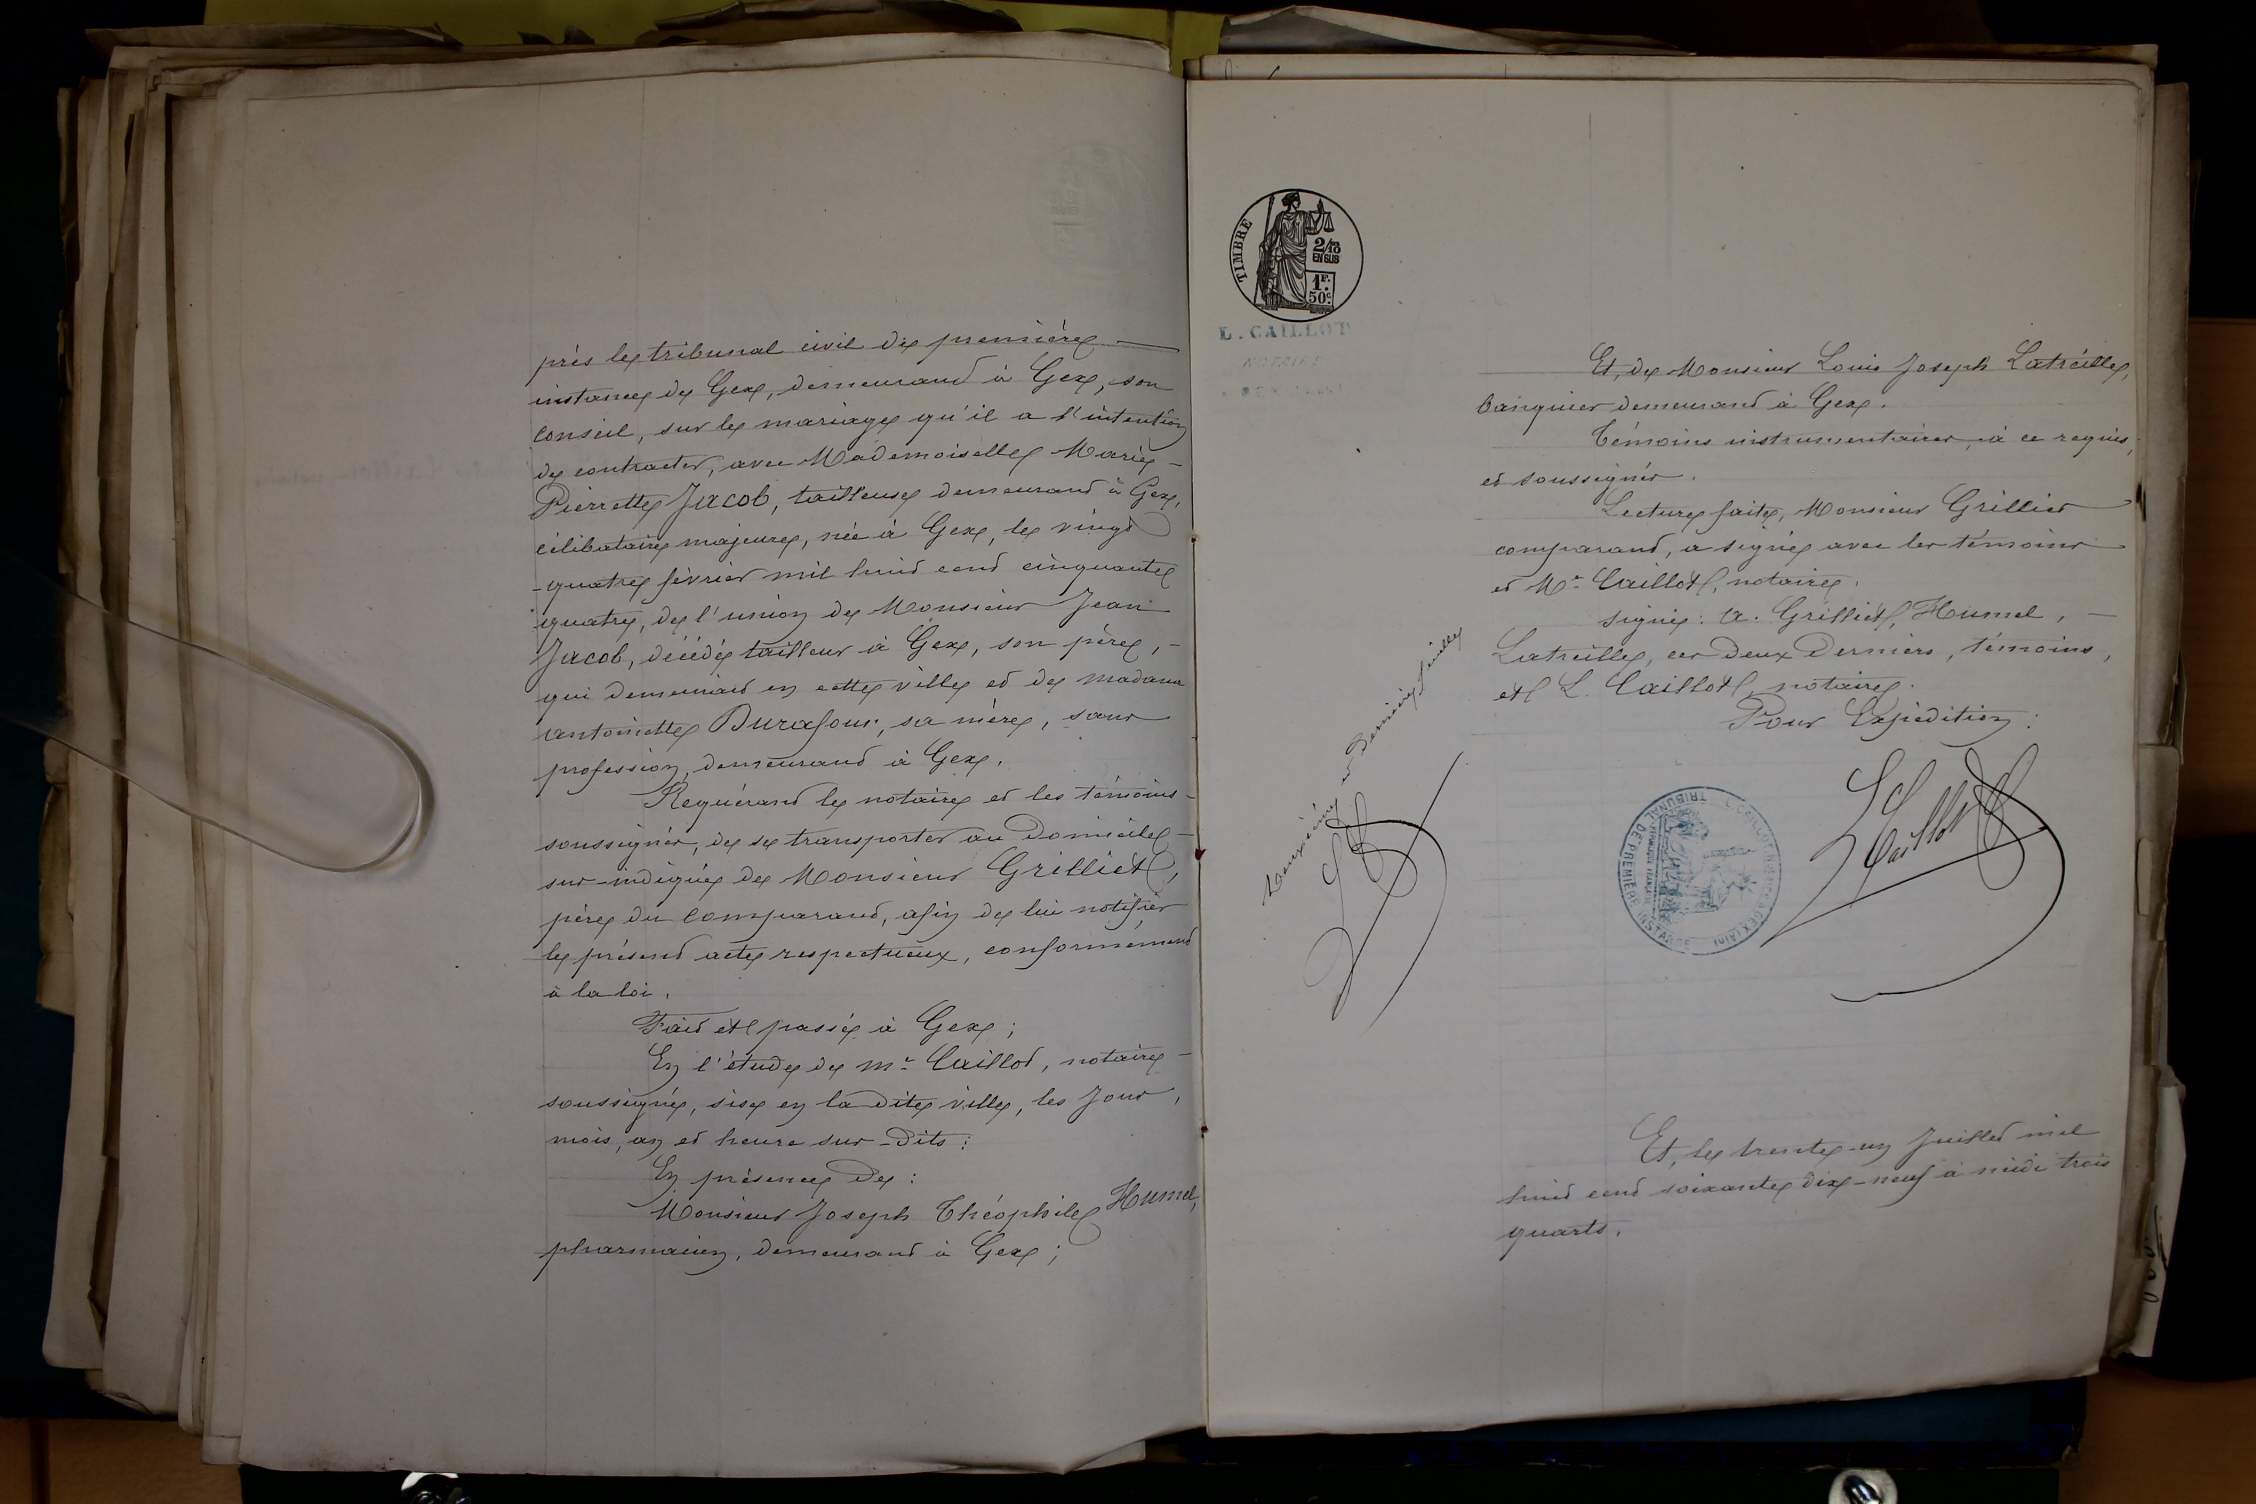 près le tribunal civil de première
instance de Gex, demeurant à Gex, son
conseil, sur le mariage qu'il a l'intention
de contracter, avec Mademoiselle Marie
Pierrette Jacob, tailleuse demeurant à Gex,
célibataire majeure, née à Gex, le vingt
-quatre février mil huit cent cinquante
quatre, de l'union de Monsieur Jean
Jacob, décédé tailleur à Gex, son père,
qui demeurait en cette ville et de madame
antoinette Durafour, sa mère, sans
profession, demeurant à Gex.
Requérant le notaire et les témoins
soussignés, de se transporter au Domicile
sur-indiqué de Monsieur Grilliet,
père du comparant, afin de lui notifier
le présent acte respectueux, conformément
à la loi.
Fait et passé à Gex;
En l'étude de Me Caillot, notaire
soussigné, sise en la dite ville, les Jour,
mois, an et heure sur-dits:
En présence De:
Monsieur Joseph Théophile Humel,
pharmacien, demeurant à Gex;
TIMBRE
2/10
EN SUS
1F.
50c.
L. CAILLOT
NOTAIRE
Deuxième et Dernière feuille
Et, de Monsieur Louis Joseph Latreille,
banquier demeurant à Gex.
Témoins instrumentaires, à ce requis,
et soussignés.
Lecture faite, Monsieur Grilliet
comparant, a signé avec les témoins
et Me Caillot, notaire.
signé: A. Grilliet, Humel,
Latreille, ces deux Derniers, témoins,
et L. Caillot, notaire.
Pour Expédition:
L Caillot
TRIBUNAL DE PREMIERE INSTANCE
Et, le trente-un Juillet mil
huit cent soixante dix-neuf à midi trois
quarts.